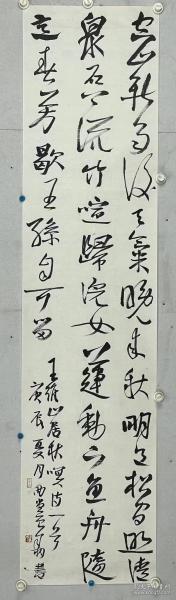 空山新雨後天氣晚來秋明月松間照清
泉石上流竹喧歸浣女蓮動下漁舟隨
意春芳歇王孫自可留
王維山居秋暝詩一首
庚辰夏月書